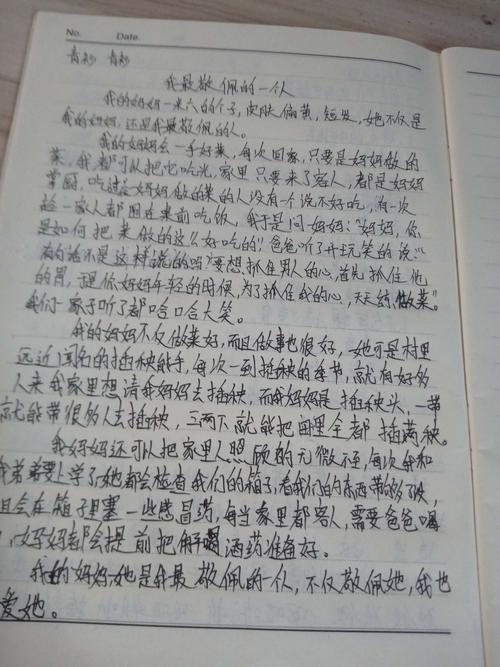 No.
Date.
青衫 青衫
我最敬佩的一个人
我的妈妈一米六的个子，皮肤偏黄，短发，她不仅是
我的妈妈，还是我最敬佩的人。
我的妈妈会一手好菜，每次回家，只要是妈妈做的
菜，我都可以把它吃光，家里只要来了客人，都是妈妈
掌厨，吃过妈妈做的菜的人没有一个说不好吃，有一次
一家人都围在桌前吃饭，我于是问妈妈："妈妈，你
是如何把菜做的这么好吃的！"爸爸听了开玩笑的说："
有句话不是这样说的吗？要想抓住男人的心，首先抓住他
的胃，是你妈妈年轻的时候，为了抓住我的心，天天练做菜"。
我们一家子听了都哈哈大笑。
我的妈妈不仅做菜好，而且做事也很好，她可是村里
远近闻名的插秧能手，每次一到插秧的季节，就有好多
人来我家里想请我妈妈去插秧，而我妈妈是插秧头，一带
就能带很多人去插秧，三两下就能把田里全都插满秧。
我妈妈还可以把家里人照顾的无微不至，每次我和
我弟弟要上学了，她都会检查我们的箱子，看我们的东西带够了没，
且会在箱子里塞一些感冒药，每当家里都客人，需要爸爸喝
，妈妈都会提前把解酒药准备好。
我的妈妈她是我最敬佩的一个人，不仅敬佩她，我也
爱她。